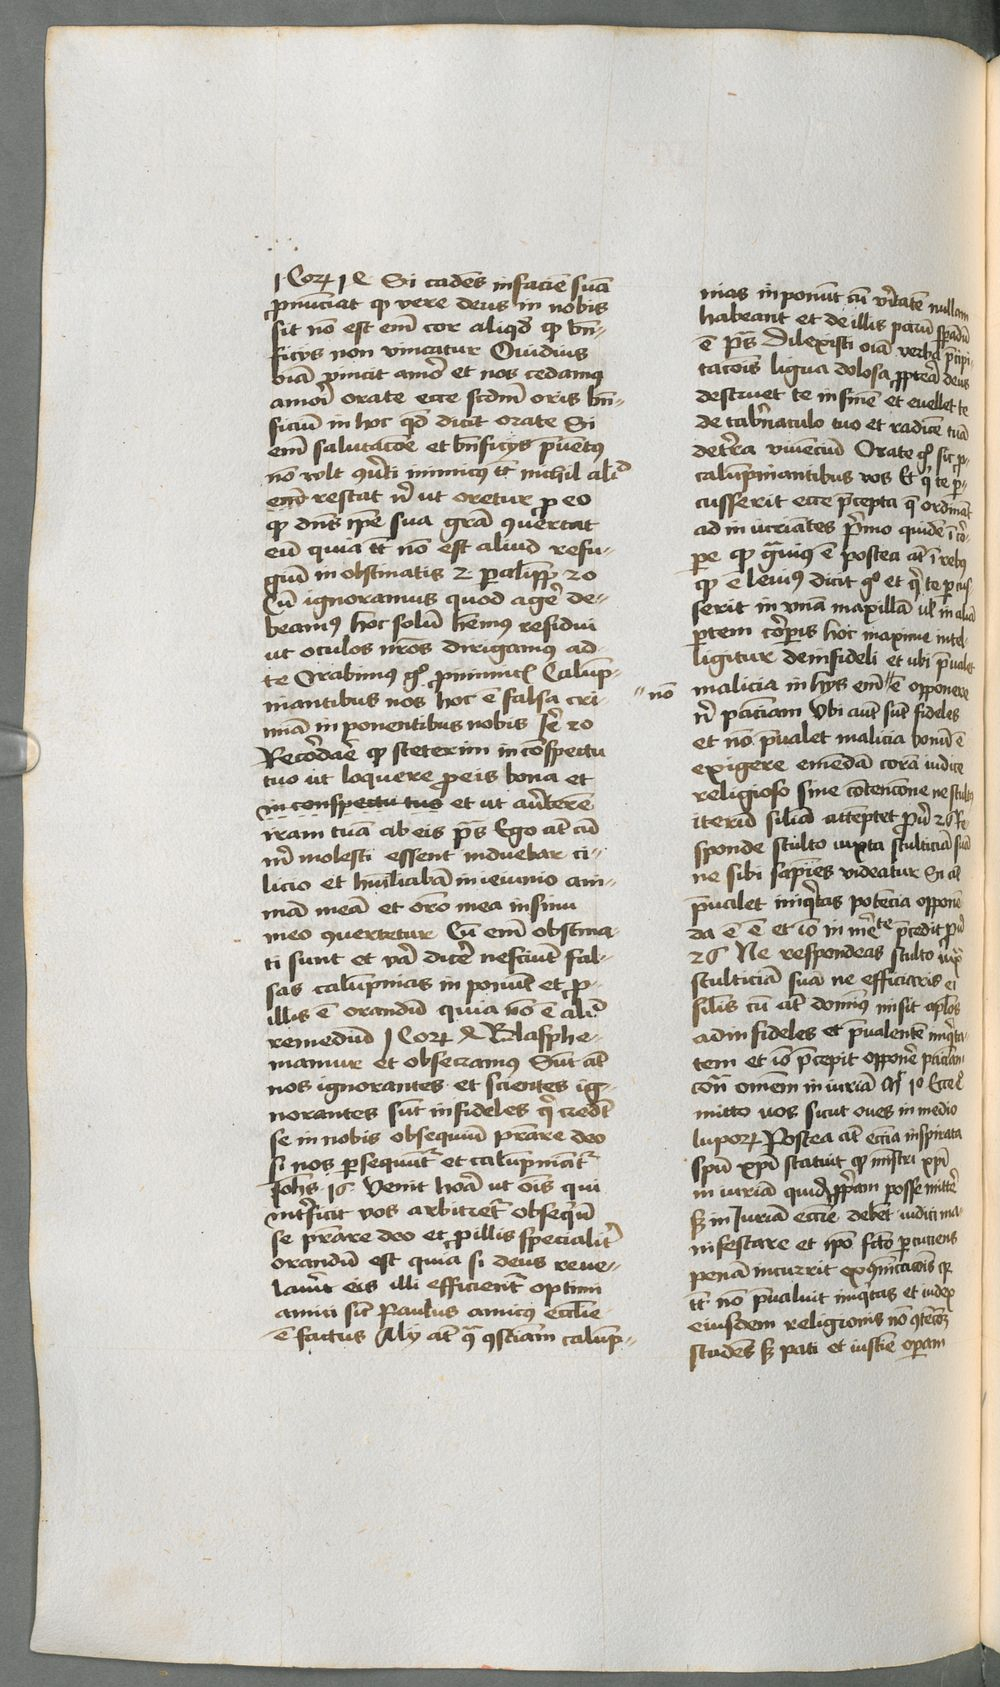 1 Corꝝ 14 Si cadēs in faciē suā
ꝓnūciat ꝙ vere deus in nobis
sit nō est em̄ cor aliqđ ꝙ bn̄-
ficijs non vincatur Ouidius
oīa ꝓuincit amor et nos cedamꝰ
amori orate ecce scdm̄ oris bn̄-
ficiū in hoc qđ dicit orate Si
em̄ salutacōe et bn̄ficijs p̄uentꝰ
nō vlt ꝯu̓ti inimicꝰ tc̄ nichil aliđ
em̄ restat n̄ ut oretur ꝓ eo
ꝙ dn̄s ip̄e sua gr̄a ꝯuertat
eū quia tc̄ nō est aliud refu-
giū in obstinatis 2 paralipp̄ 20
Cū ignoramus quod age̓ de-
beamꝰ hoc solū hēmus residui
ut oculos nr̄os dirigamus ad
te Orabimus gͦ ꝓ inimicis Calūp-
niantibus nos hoc ē falsa cri-
mīa in ponentibus nobis Je̓ 20
Recordāe ꝙ steterim in cōspectu
tuo ut loquere ꝓ eis bona et
in conspectu tuo et ut au̓terē
iram tuā ab eis p̄s Ego aūt cū
m̓ molesti essent induebar ci-
licio et hūiliabā in ieiunio ani-
mā meā et orō mea in sinu
meo ꝯuertetur Cū em̄ obstina-
ti sunt et vā dice̓ nesciūt fal-
sas calūpnias in ponūt et ꝓ
illis ē orandū quia nō ē aliđ
remediū 1 Corꝝ 4 Blasphe-
mamur et obsecramus Sūt aūt
nos ignorantes et scientes ig-
norantes sūt infideles q̓ credūt
se in nobis obsequiū prāre deo
si nos ꝑsequūtur et calūpniātur
Johs 16 Venit hora ut ōis qui
int̓ficit vos arbitret̓ obsequiū
se prāre deo et ꝓ illis specialit̓
orandū est quia si deus reue-
lau̓it eis illi efficient̓ optimi
amici sic̄ Paulus amicus eccl̄ie
ē factus Alij aūt ꝯ̄ ꝯsciam calūp-
nias in ponūt cū v̓itatē nullam
habeant et de illis parū sperādū
ē p̄s Dilexisti oīa verba p̄cipi-
tacōis ligua dolosa ꝓpterea deus
destruet te in finē et euellet te
de tabn̓aculo tuo et radicē tuā
de terra viuenciū Orate gͦ sic ꝓ
calūpniantibus vos Et q̓ te ꝑ-
cusserit ecce p̄cepta q̄ ordināt
ad in iuriātes Primo quidē ī cor-
pe ꝙ g̓uius ē postea aūt ī rebꝰ
ꝙ ē leuiꝰ dicit gͦ et q̓ te ꝑcus
serit in vnā maxillā ul̄ in aliā
ꝑtem corꝑis hoc maxime intel-
ligitur de infideli et ubi p̄ualet
nō malicia in hijs em̄ ē opponere
n̄ paciāam Vbi aūt sūt fideles
et nō p̄ualet malicia bonū ē
exigere emēdā corā iudice
religioso sine cōtencōne ne stultꝰ
iterū silia attēptet ꝓu̓ 26 Re-
sponde stulto iuxta stulticiā suā
ne sibi sapiēs videatur Si aūt
p̄ualet iniq̓tas potencia opponē
da ē ē et iō in m̄te p̄cedit ꝓu̓
26 Ne respondeas stulto iux̄
stulticiā suā ne efficiaris ei
silis cū aūt dominꝰ misit apl̄os
ad in fideles et p̄ualentē iniq̓ta-
tem et iō p̄cepit opponē paciāam
cōtra omēm in iuriā Mt̄ 10 Ecce gͦ
mitto uos sicut oues in medio
luporꝝ Postea aūt eccīa inspirata
spū xp̄i statuit ꝙ ministri xp̄i
in iuriā quid ꝓpriam posse mitte̓
sꝫ in Juriā eccīe debet iudici ma-
nifestare et ip̄o fcō ꝑcuciens
penā incurrit excōmunicacōis ꝙ
tc̄ nō p̄ualuit iniq̓tas et iudex
eiusdem religionis nō ꝯtēcōꝫ
studens sꝫ pati et iustīe oꝑam